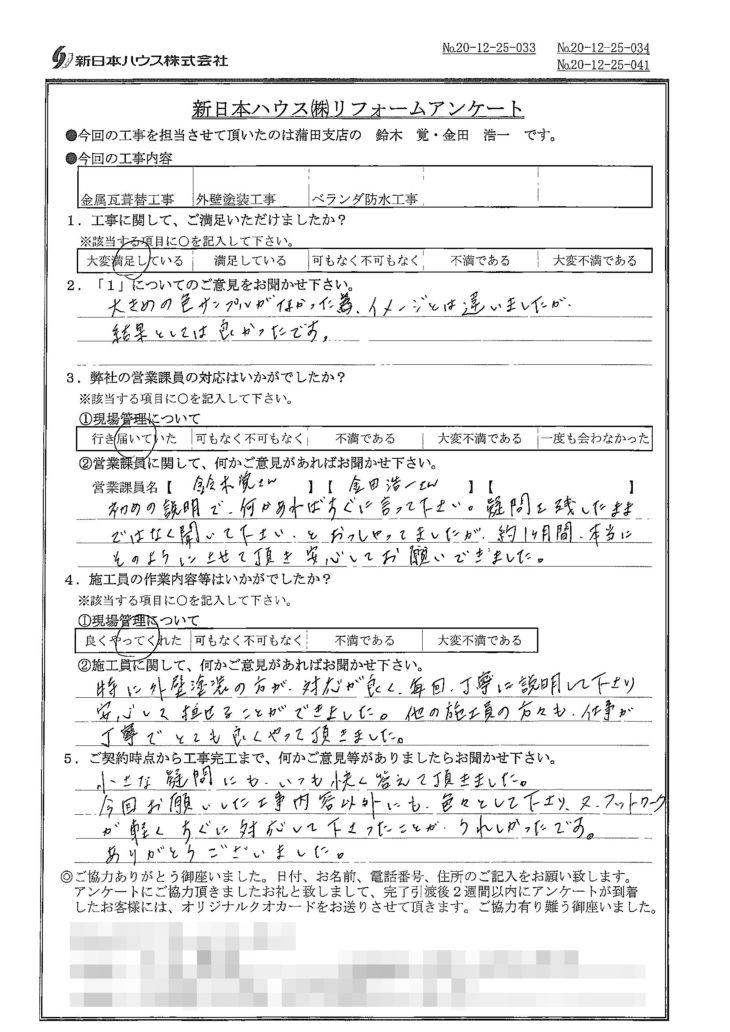 新日本ハウス株式会社
No.20-12-25-033 No.20-12-25-034
No.20-12-25-041
新日本ハウス㈱リフォームアンケート
●今回の工事を担当させて頂いたのは蒲田支店の 鈴木 覚・金田 浩一 です。
●今回の工事内容
金属瓦葺替工事 外壁塗装工事 ベランダ防水工事
1．工事に関して、ご満足いただけましたか？
※該当する項目に○を記入して下さい。
大変満足している 満足している 可もなく不可もなく 不満である 大変不満である
2．「1」についてのご意見をお聞かせ下さい。
大きめの色サンプルがなかった為、イメージとは違いましたが、
結果としては良かったです。
3．弊社の営業課員の対応はいかがでしたか？
※該当する項目に○を記入して下さい。
①現場管理について
行き届いていた 可もなく不可もなく 不満である 大変不満である 一度も会わなかった
②営業課員に関して、何かご意見があればお聞かせ下さい。
営業課員名【 鈴木覚さん 】【 金田浩一さん 】【 】
初めの説明で、何かあればすぐに言って下さい。疑問を残したまま
ではなく聞いて下さい、とおっしゃってましたが、約1ヶ月間、本当に
そのようにさせて頂き安心してお願いできました。
4．施工員の作業内容等はいかがでしたか？
※該当する項目に○を記入して下さい。
①現場管理について
良くやってくれた 可もなく不可もなく 不満である 大変不満である
②施工員に関して、何かご意見があればお聞かせ下さい。
特に外壁塗装の方が、対応が良く、毎回、丁寧に説明して下さり
安心して担せることができました。他の施工員の方々も、仕事が
丁寧でとても良くやって頂きました。
5．ご契約時点から工事完工まで、何かご意見等がありましたらお聞かせ下さい。
小さな疑問にも、いつも快く答えて頂きました。
今回お願いした工事内容以外にも、色々として下さり、又、フットワーク
が軽くすぐに対応して下さったことが、うれしかったです。
ありがとうございました。
◎ご協力ありがとう御座いました。日付、お名前、電話番号、住所のご記入をお願い致します。
アンケートにご協力頂きましたお礼と致しまして、完了引渡後2週間以内にアンケートが到着
したお客様には、オリジナルクオカードをお送りさせて頂きます。ご協力有り難う御座いました。